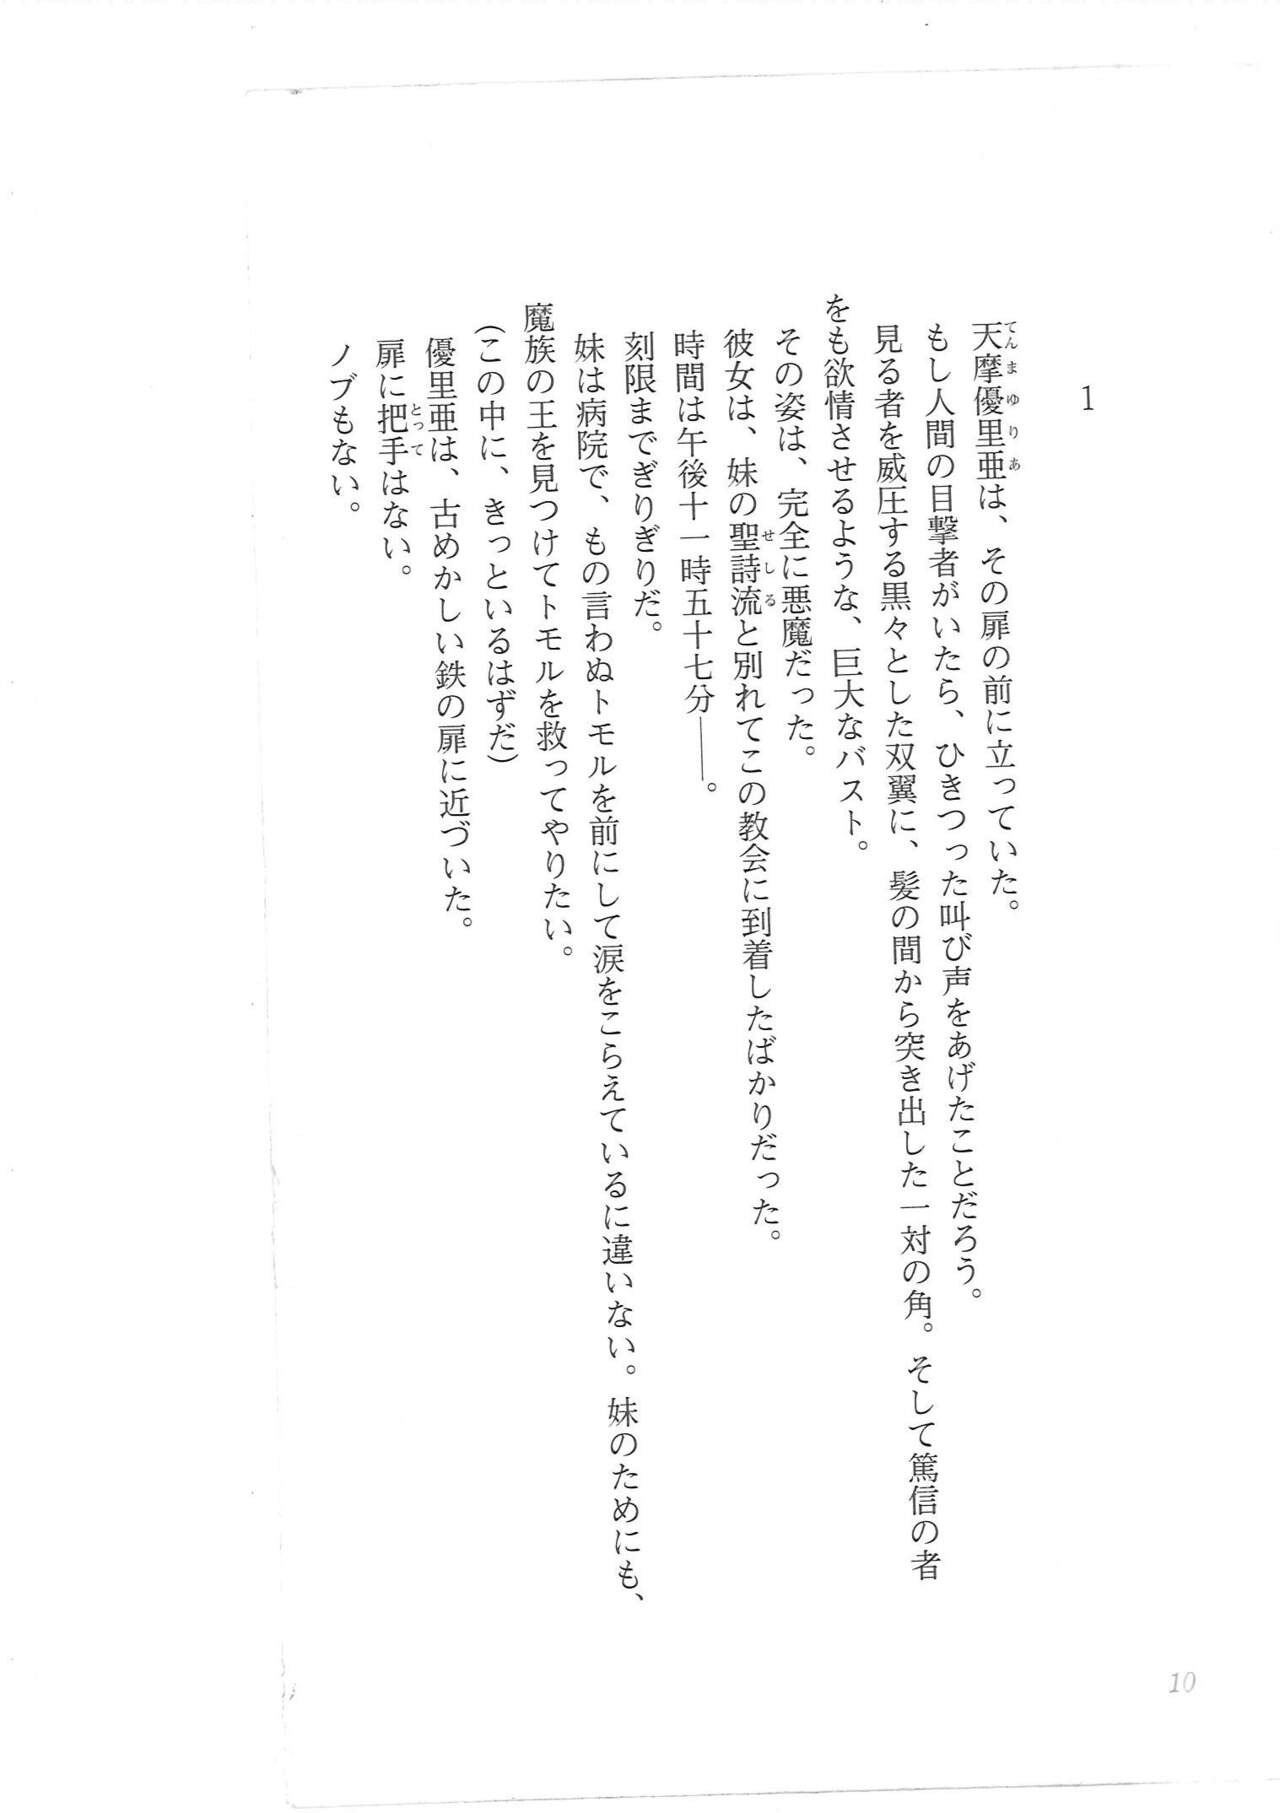 1
天摩優里亜は、その扉の前に立っていた。
もし人間の目撃者がいたら、ひきつった叫び声をあげたことだろう。
見る者を威圧する黒々とした双翼に、髪の間から突き出した一対の角。そして篤信の者
をも欲情させるような、巨大なバスト。
その姿は、完全に悪魔だった。
彼女は、妹の聖詩流と別れてこの教会に到着したばかりだった。
時間は午後十一時五十七分――。
刻限までぎりぎりだ。
妹は病院で、もの言わぬトモルを前にして涙をこらえているに違いない。妹のためにも、
魔族の王を見つけてトモルを救ってやりたい。
(この中に、きっといるはずだ)
優里亜は、古めかしい鉄の扉に近づいた。
扉に把手はない。
ノブもない。
10